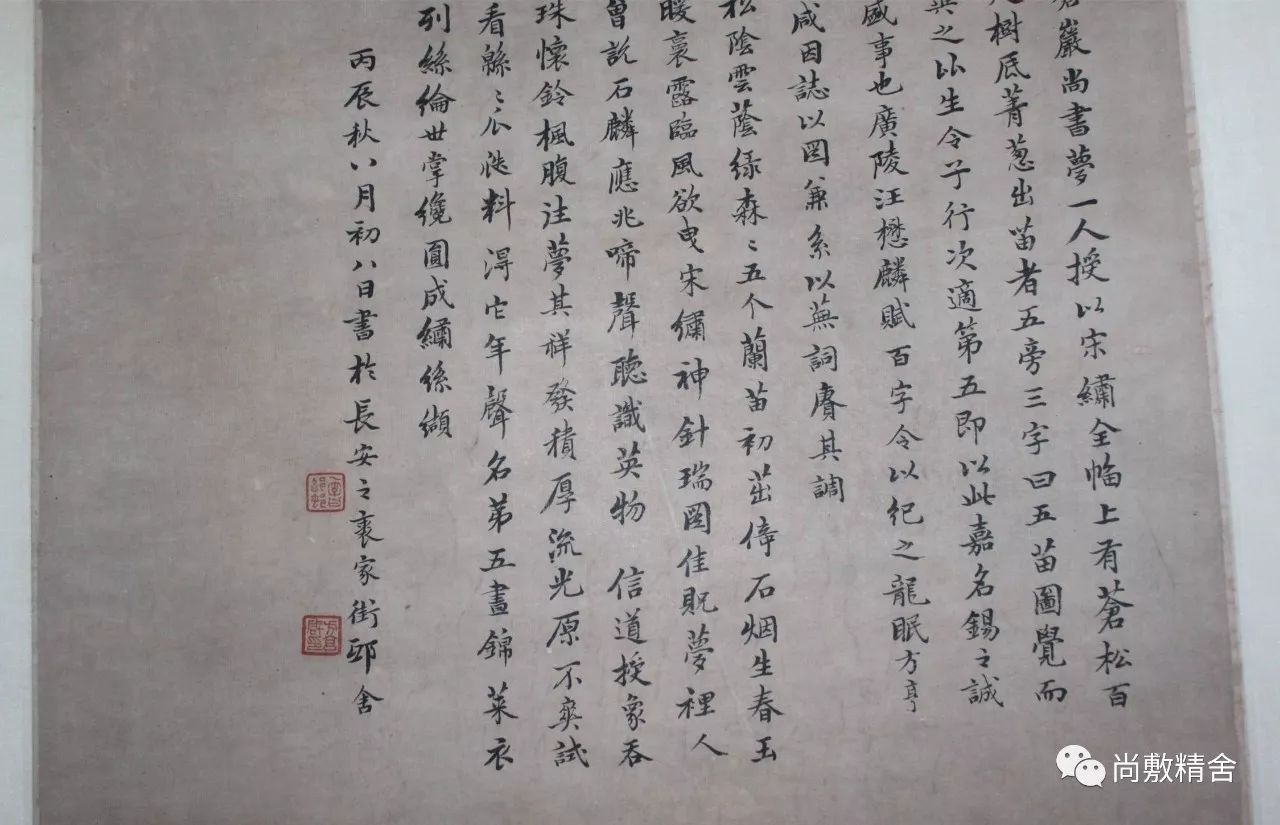 巖尚書夢一人授以宋繡全幅上有蒼松百
樹底菁葱出苗者五旁三字曰五苗圖覺而
之比生令子行次適第五即以此嘉名錫之誠
盛事也廣陵汪懋麟賦百字令以紀之龍眠方亨
咸因誌以圖兼系以蕪詞賡其調
松陰雲蔭緑森〻五个蘭苗初茁倚石烟生春玉
暖裛露臨風欲曳宋繡神針瑞圖佳貺夢裡人
曾說石麟應兆啼聲聽識英物 信道授象吞
珠懷鈴楓腹注夢其祥發積厚流光原不爽試
看緜〻瓜瓞料得它年聲名第五晝錦萊衣
列絲綸世掌纔圓成繡絲纈
丙辰秋八月初八日書於長安之裹家街邸舍
尚敷精舍